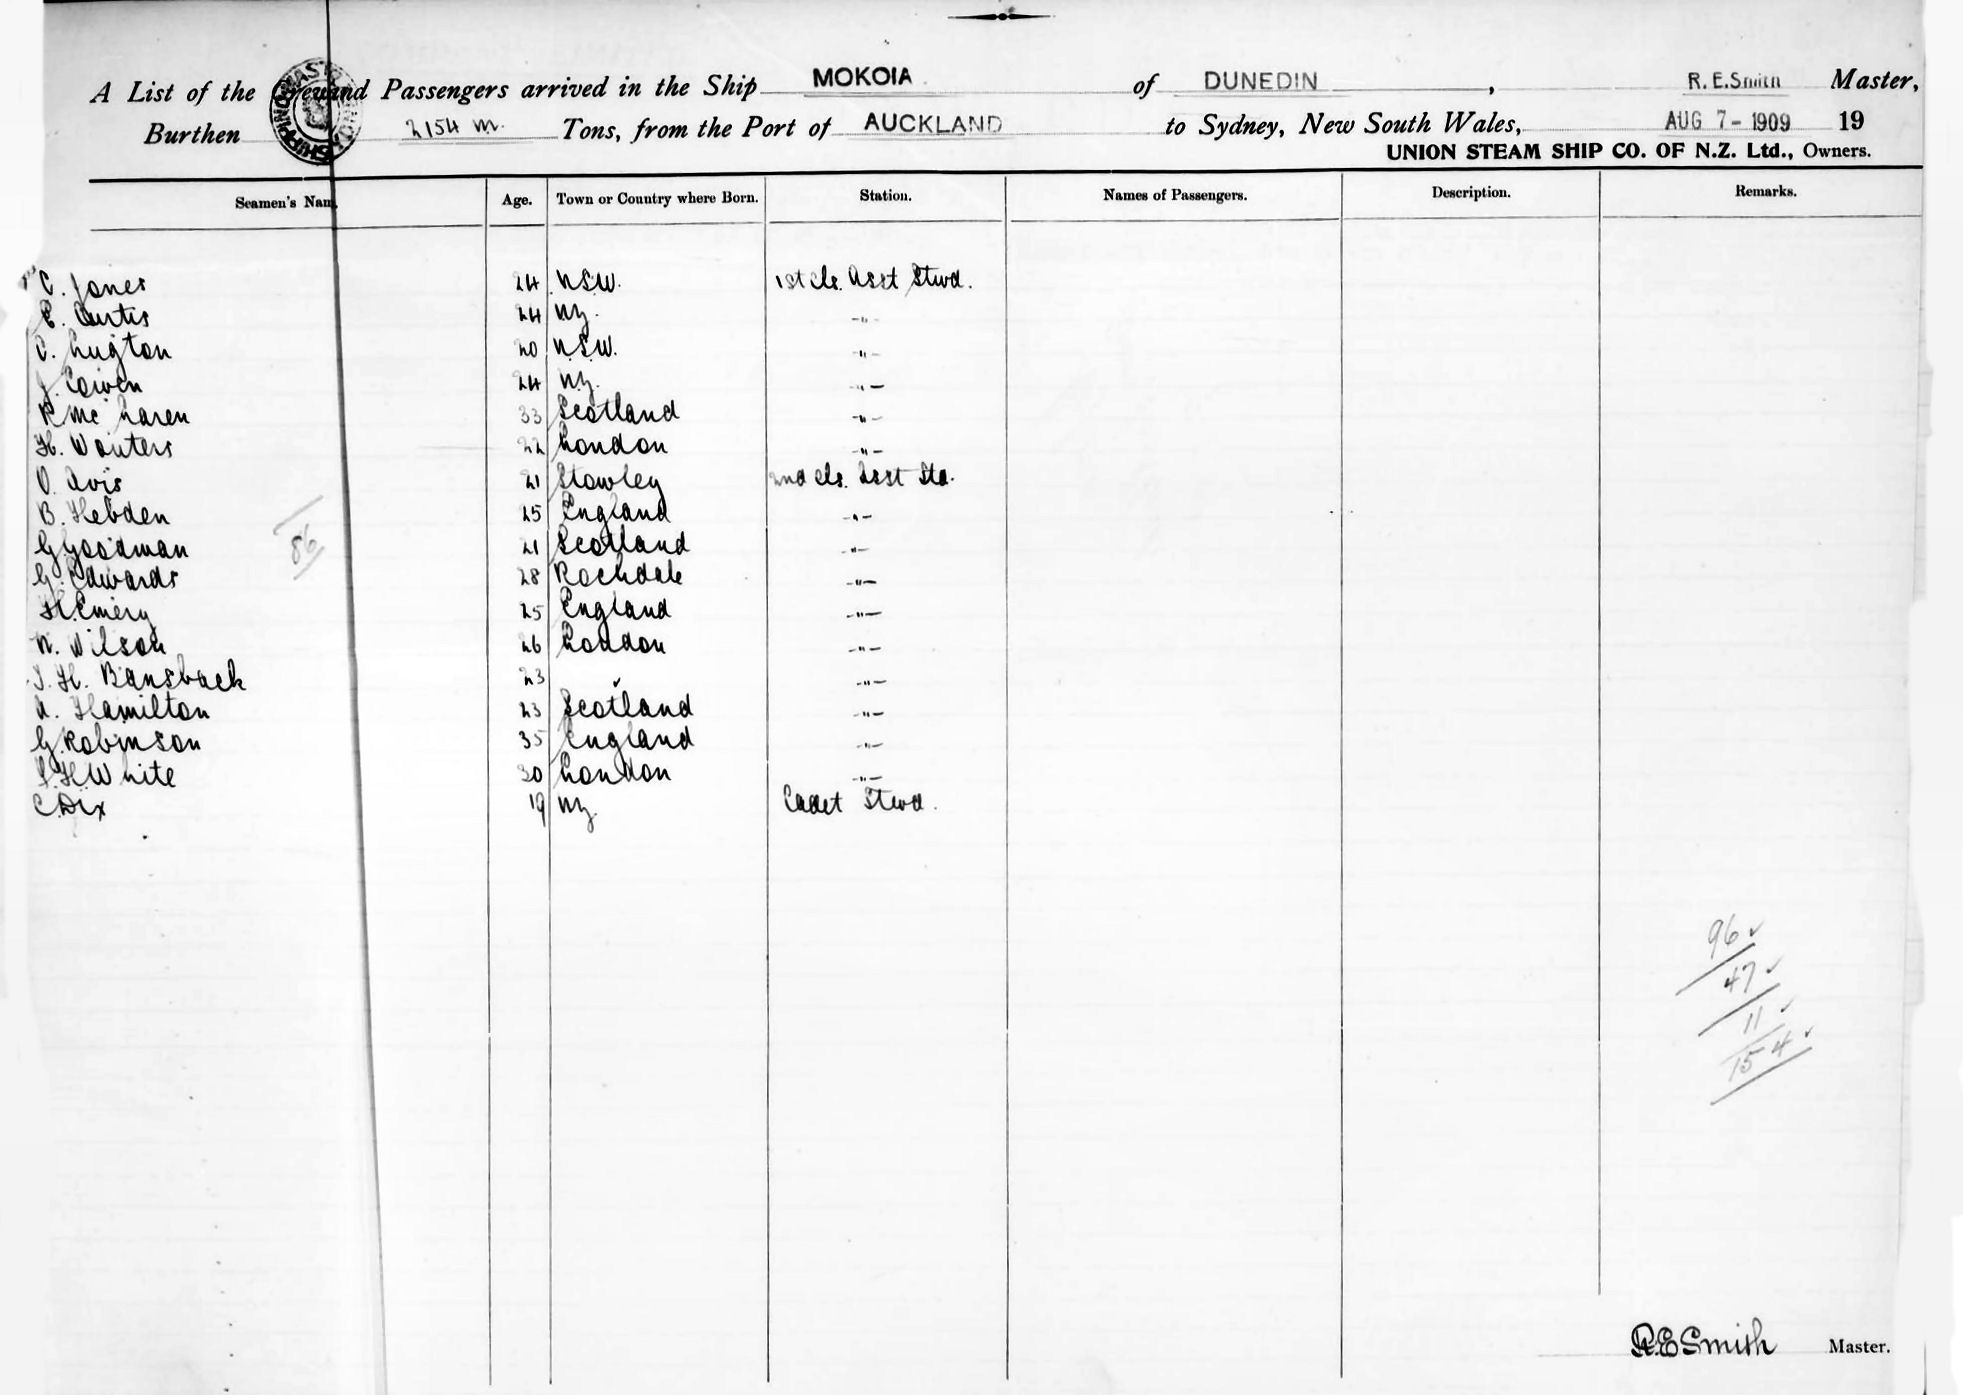 A List of the Crew and Passengers arrived in the Ship MOKOIA of DUNEDIN, R. E. Smith Master,
Burthen 2154 Tons, from the Port of AUCKLAND to Sydney, New South Wales, AUG 7- 1909 19
UNION STEAM SHIP CO. OF N.Z. Ltd., Owners.
Seamen's Nam Age. Town or Country where Born. Station. Names of Passengers. Description. Remarks.
C. Jones 24 N.S.W. 1st cls. Asst Stwd.
E. Curtis 24 N.Z. -"-
C. Lugton 20 N.S.W. -"-
J. Cowen 24 N.Z. -"-
R Mc Laren 33 Scotland -"-
H. Wouters 22 London -"-
O. Avis 21 Stowley 2nd cls. Asst Std.
B. Hebden 25 England -"-
G. Goodman 21 Scotland -"-
G. Edwards 28 Rochdale -"-
H. Emery 25 England -"-
N. Wilson 26 London -"-
J. H. Bansback 23 " -"-
A. Hamilton 23 Scotland -"-
G. Robinson 35 England -"-
S. H White 30 London -"-
C. Dix 19 NZ Cadet Stwd.
86
96
47
11
154
R.E Smith Master.